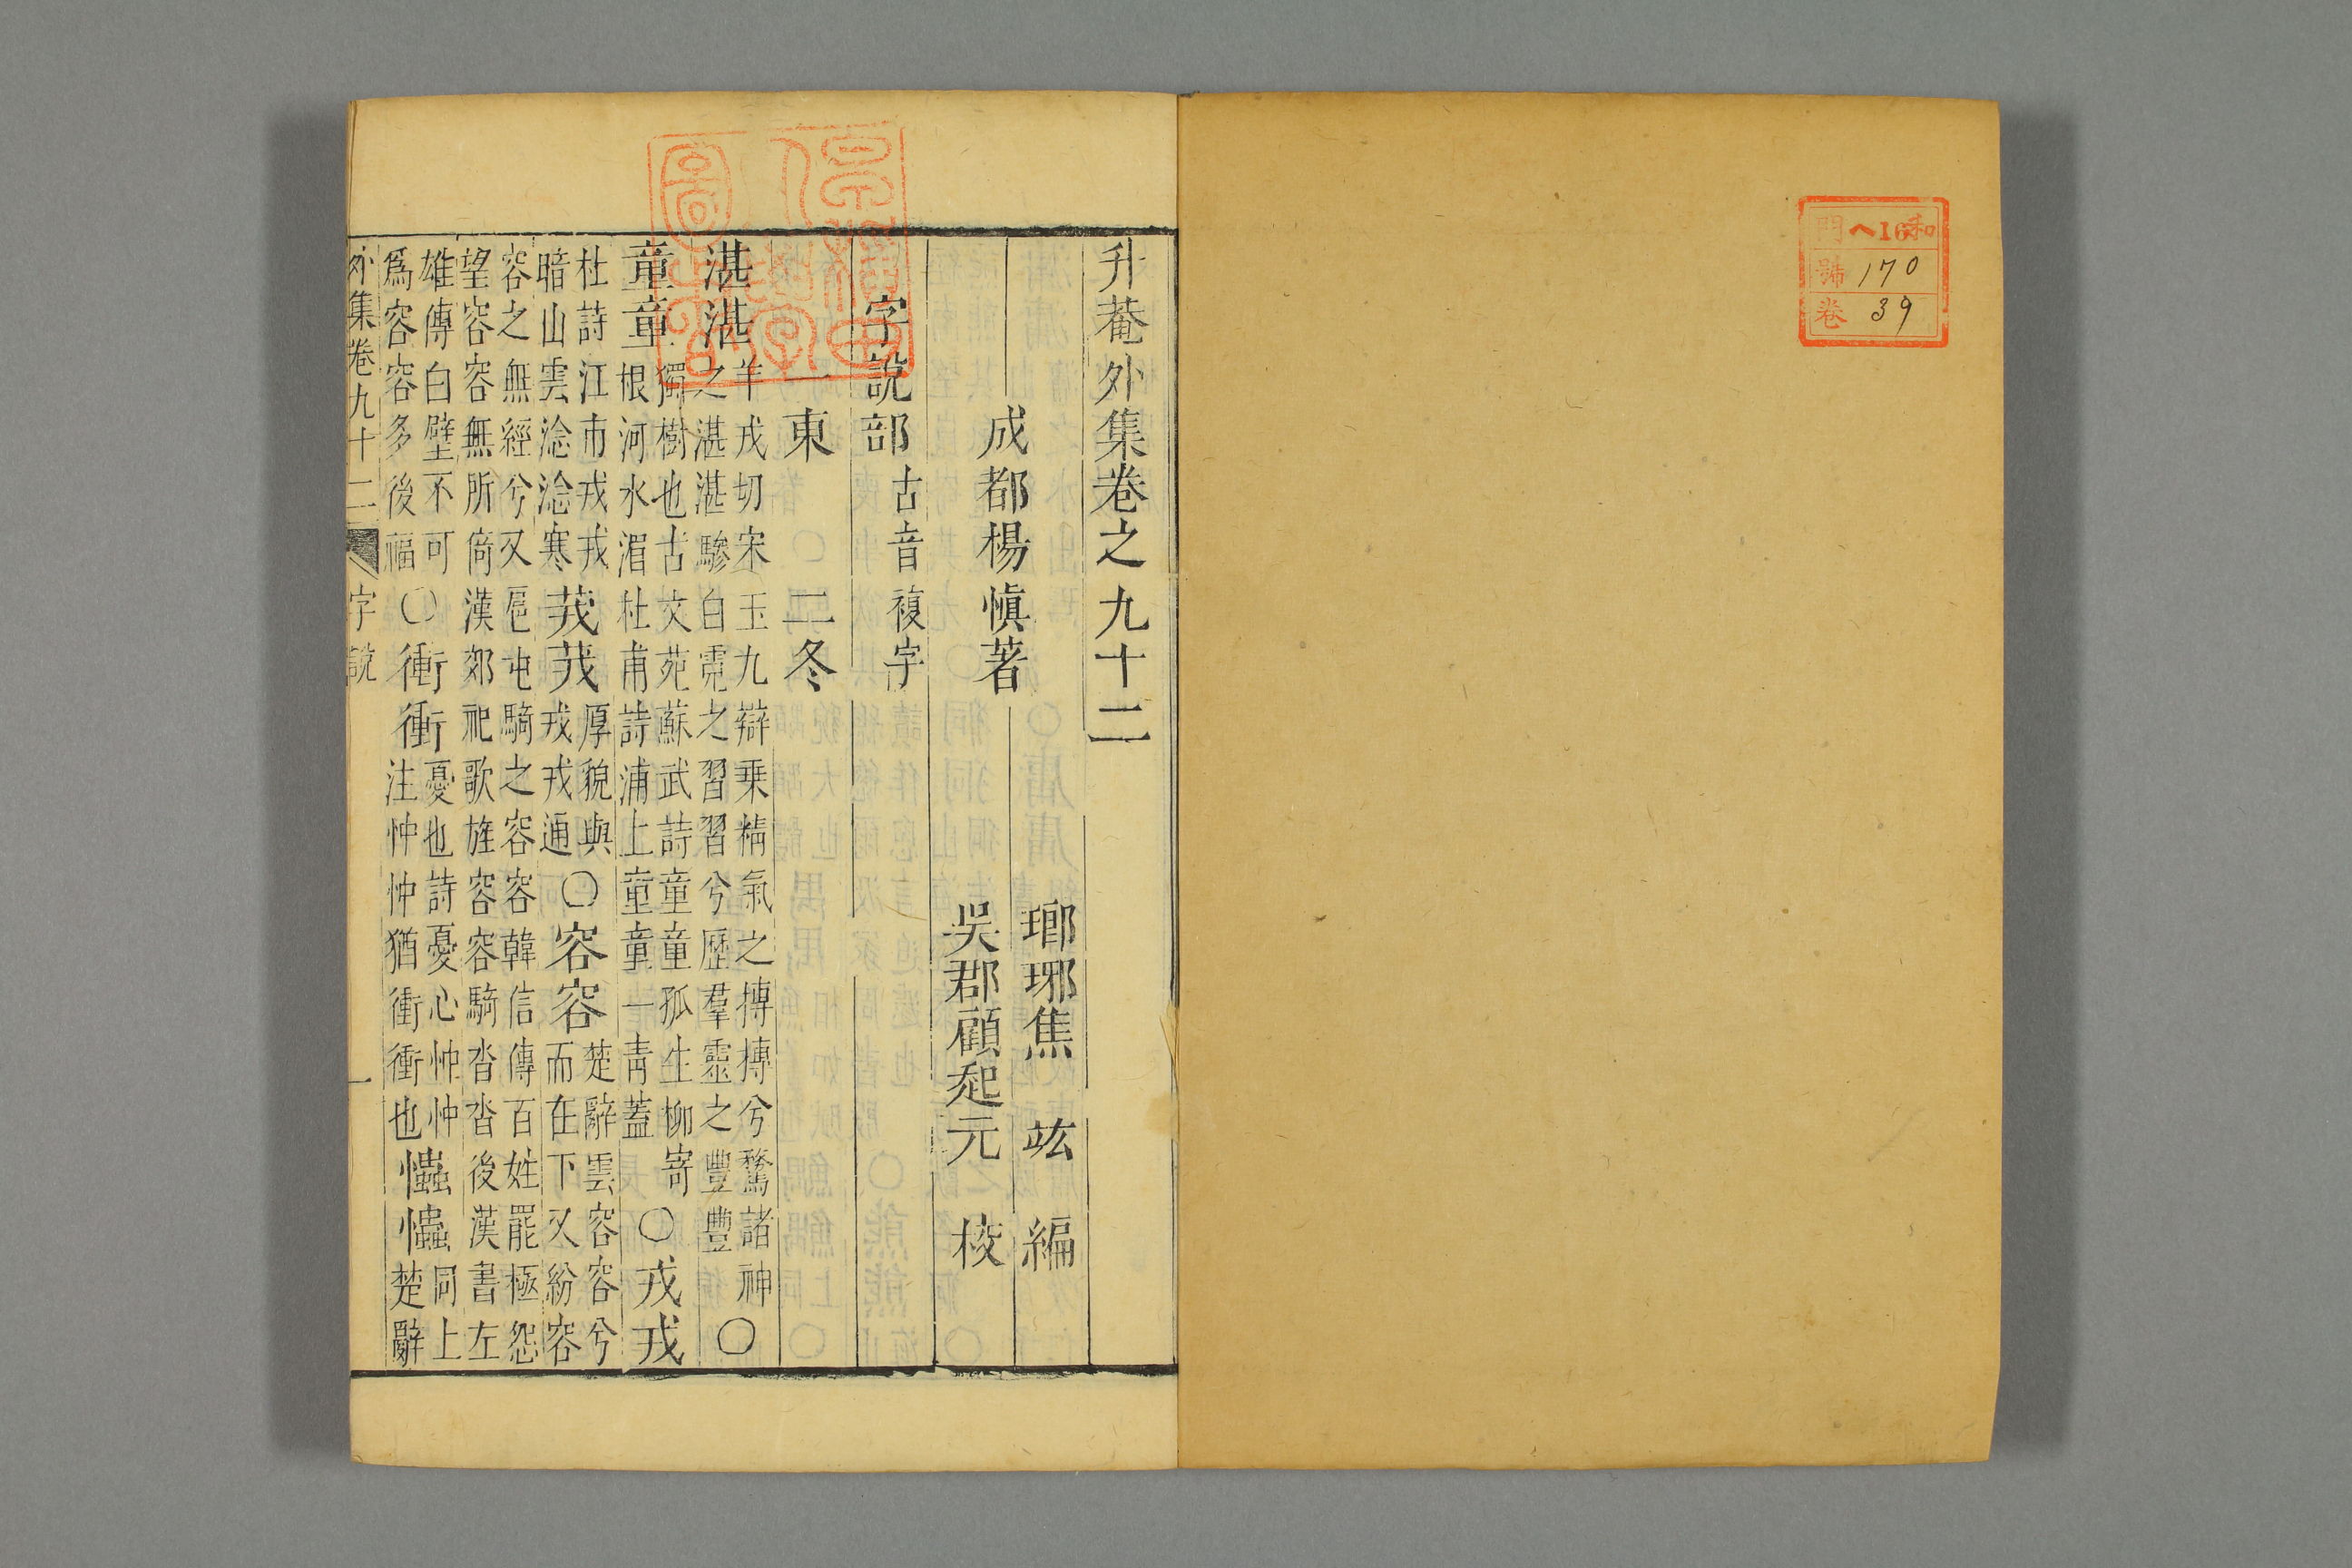 門 ヘ16 和
號 170
卷 39
升菴外集卷之九十二
成都楊愼著
瑯琊焦 竑 編
吳郡顧起元 校
字說部 古音複字
一東 二冬
湛湛 羊戎切宋玉九辯乗精氣之摶摶兮騖諸神
之湛湛驂白霓之習習兮歷羣靈之豐豐 〇
童童 獨樹也古文苑蘇武詩童童孤生柳寄
根河水湄杜甫詩浦上童童一青蓋 〇戎戎
杜詩江市戎戎
暗山雲淰淰寒
茙茙 厚貌與
戎戎通 〇容容 楚辭雲容容兮
而在下又紛容
容之無經兮又巵屯騎之容容韓信傳百姓罷極怨
望容容無所倚漢郊祀歌旌容容騎沓沓後漢書左
雄傳白璧不可
爲容容多後福 〇衝衝 憂也詩憂心忡忡
注忡忡猶衝衝也 𢥞𢥞 同上
楚辭
外集卷九十二 字說 一